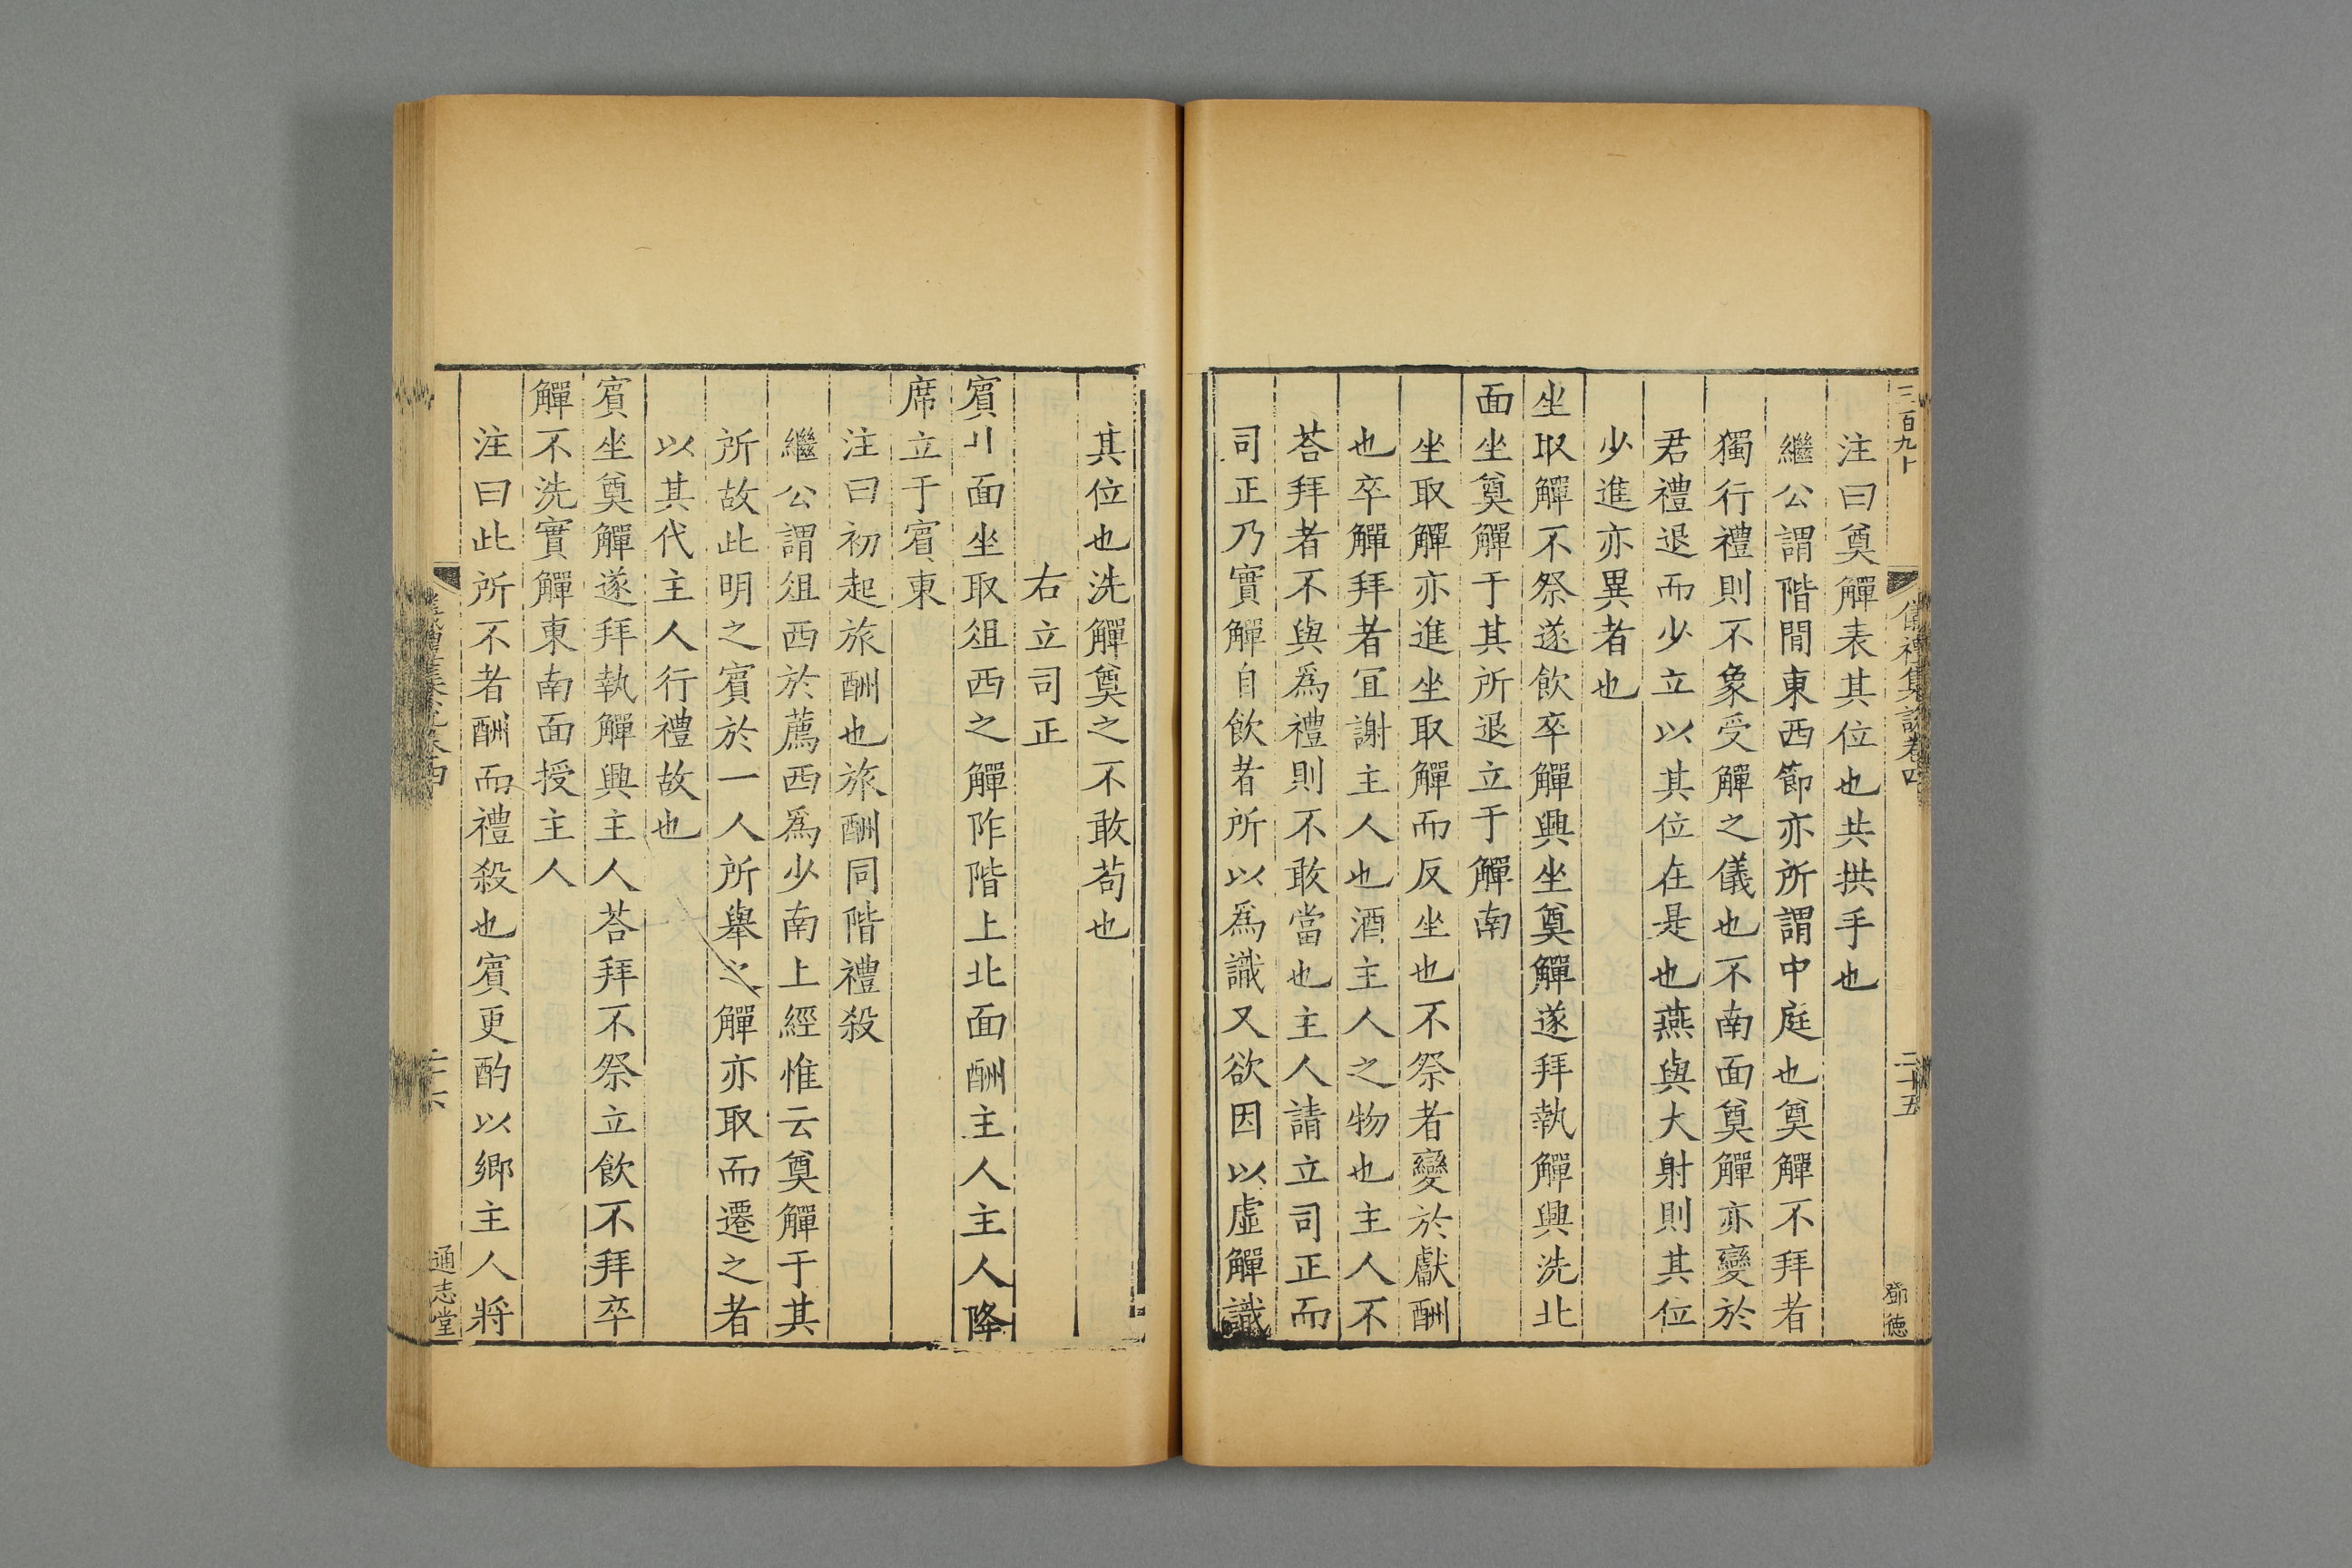 儀禮集說卷四
二十五
鄧德
注曰奠觶表其位也共拱手也
繼公謂階閒東西節亦所謂中庭也奠觶不拜者
獨行禮則不象受觶之儀也不南面奠觶亦變於
君禮退而少立以其位在是也燕與大射則其位
少進亦異者也
坐取觶不祭遂飲卒觶興坐奠觶遂拜執觶興洗北
面坐奠觶于其所退立于觶南
坐取觶亦進坐取觶而反坐也不祭者變於獻酬
也卒觶拜者宜謝主人也酒主人之物也主人不
荅拜者不與爲禮則不敢當也主人請立司正而
司正乃實觶自飲者所以爲識又欲因以虛觶識
其位也洗觶奠之不敢苟也
右立司正
賓北面坐取俎西之觶阼階上北面酬主人主人降
席立于賓東
注曰初起旅酬也旅酬同階禮殺
繼公謂俎西於薦西爲少南上經惟云奠觶于其
所故此明之賓於一人所舉之觶亦取而遷之者
以其代主人行禮故也
賓坐奠觶遂拜執觶興主人荅拜不祭立飲不拜卒
觶不洗實觶東南面授主人
注曰此所不者酬而禮殺也賓更酌以鄉主人將
通志堂